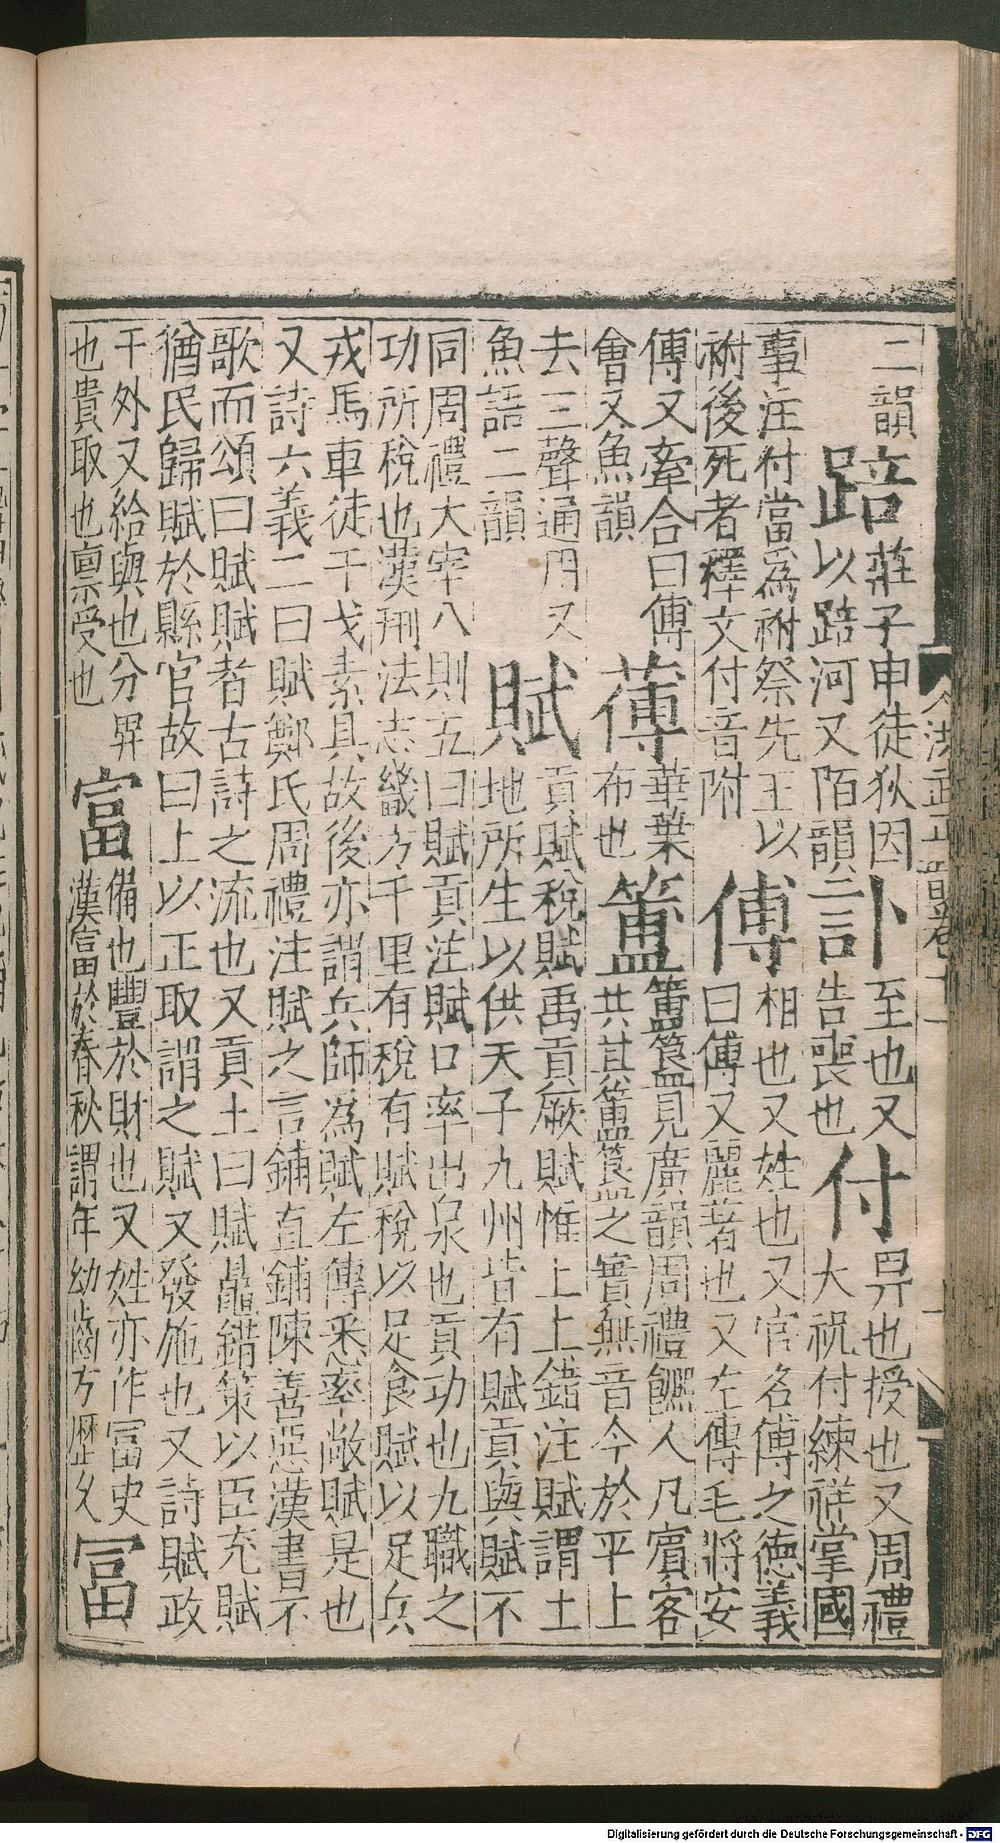 二韻踣莊子申徒狄因以踣河又陌韻訃至也又告喪也付畀也授也又周禮大祝付練祥掌國
事注付當爲祔祭先王以祔後死者釋文付音附傅相也又姓也又官名傅之德義曰傅又麗著也又左傳毛將安
傅又牽合曰傅會又魚韻蒪華葉布也簠簠簋見廣韻周禮饎人凡賓客共其簠簋之實無音今於平上
去三聲通用又魚語二韻賦貢賦稅賦禹貢厥賦惟上上錯注賦謂土地所生以供天子九州皆有賦貢與賦不
同周禮大宰八則五曰賦貢注賦口率出泉也貢功也九職之功所稅也漢刑法志畿方千里有稅有賦稅以足食賦以足兵
戎馬車徒干戈素具故後亦謂兵師爲賦左傳悉率敝賦是也又詩六義二曰賦鄭氏周禮注賦之言鋪直鋪陳善惡漢書不
歌而頌曰賦賦者古詩之流也又貢士曰賦鼂錯策以臣充賦猶民歸賦於縣官故曰上以正取謂之賦又發施也又詩賦政
于外又給與也分畀也貴取也稟受也富備也豐於財也又姓亦作冨史漢富於春秋謂年幼齒方歷久冨
Digitalisierung gefördert durch die Deutsche Forschungsgemeinschaft - DFG